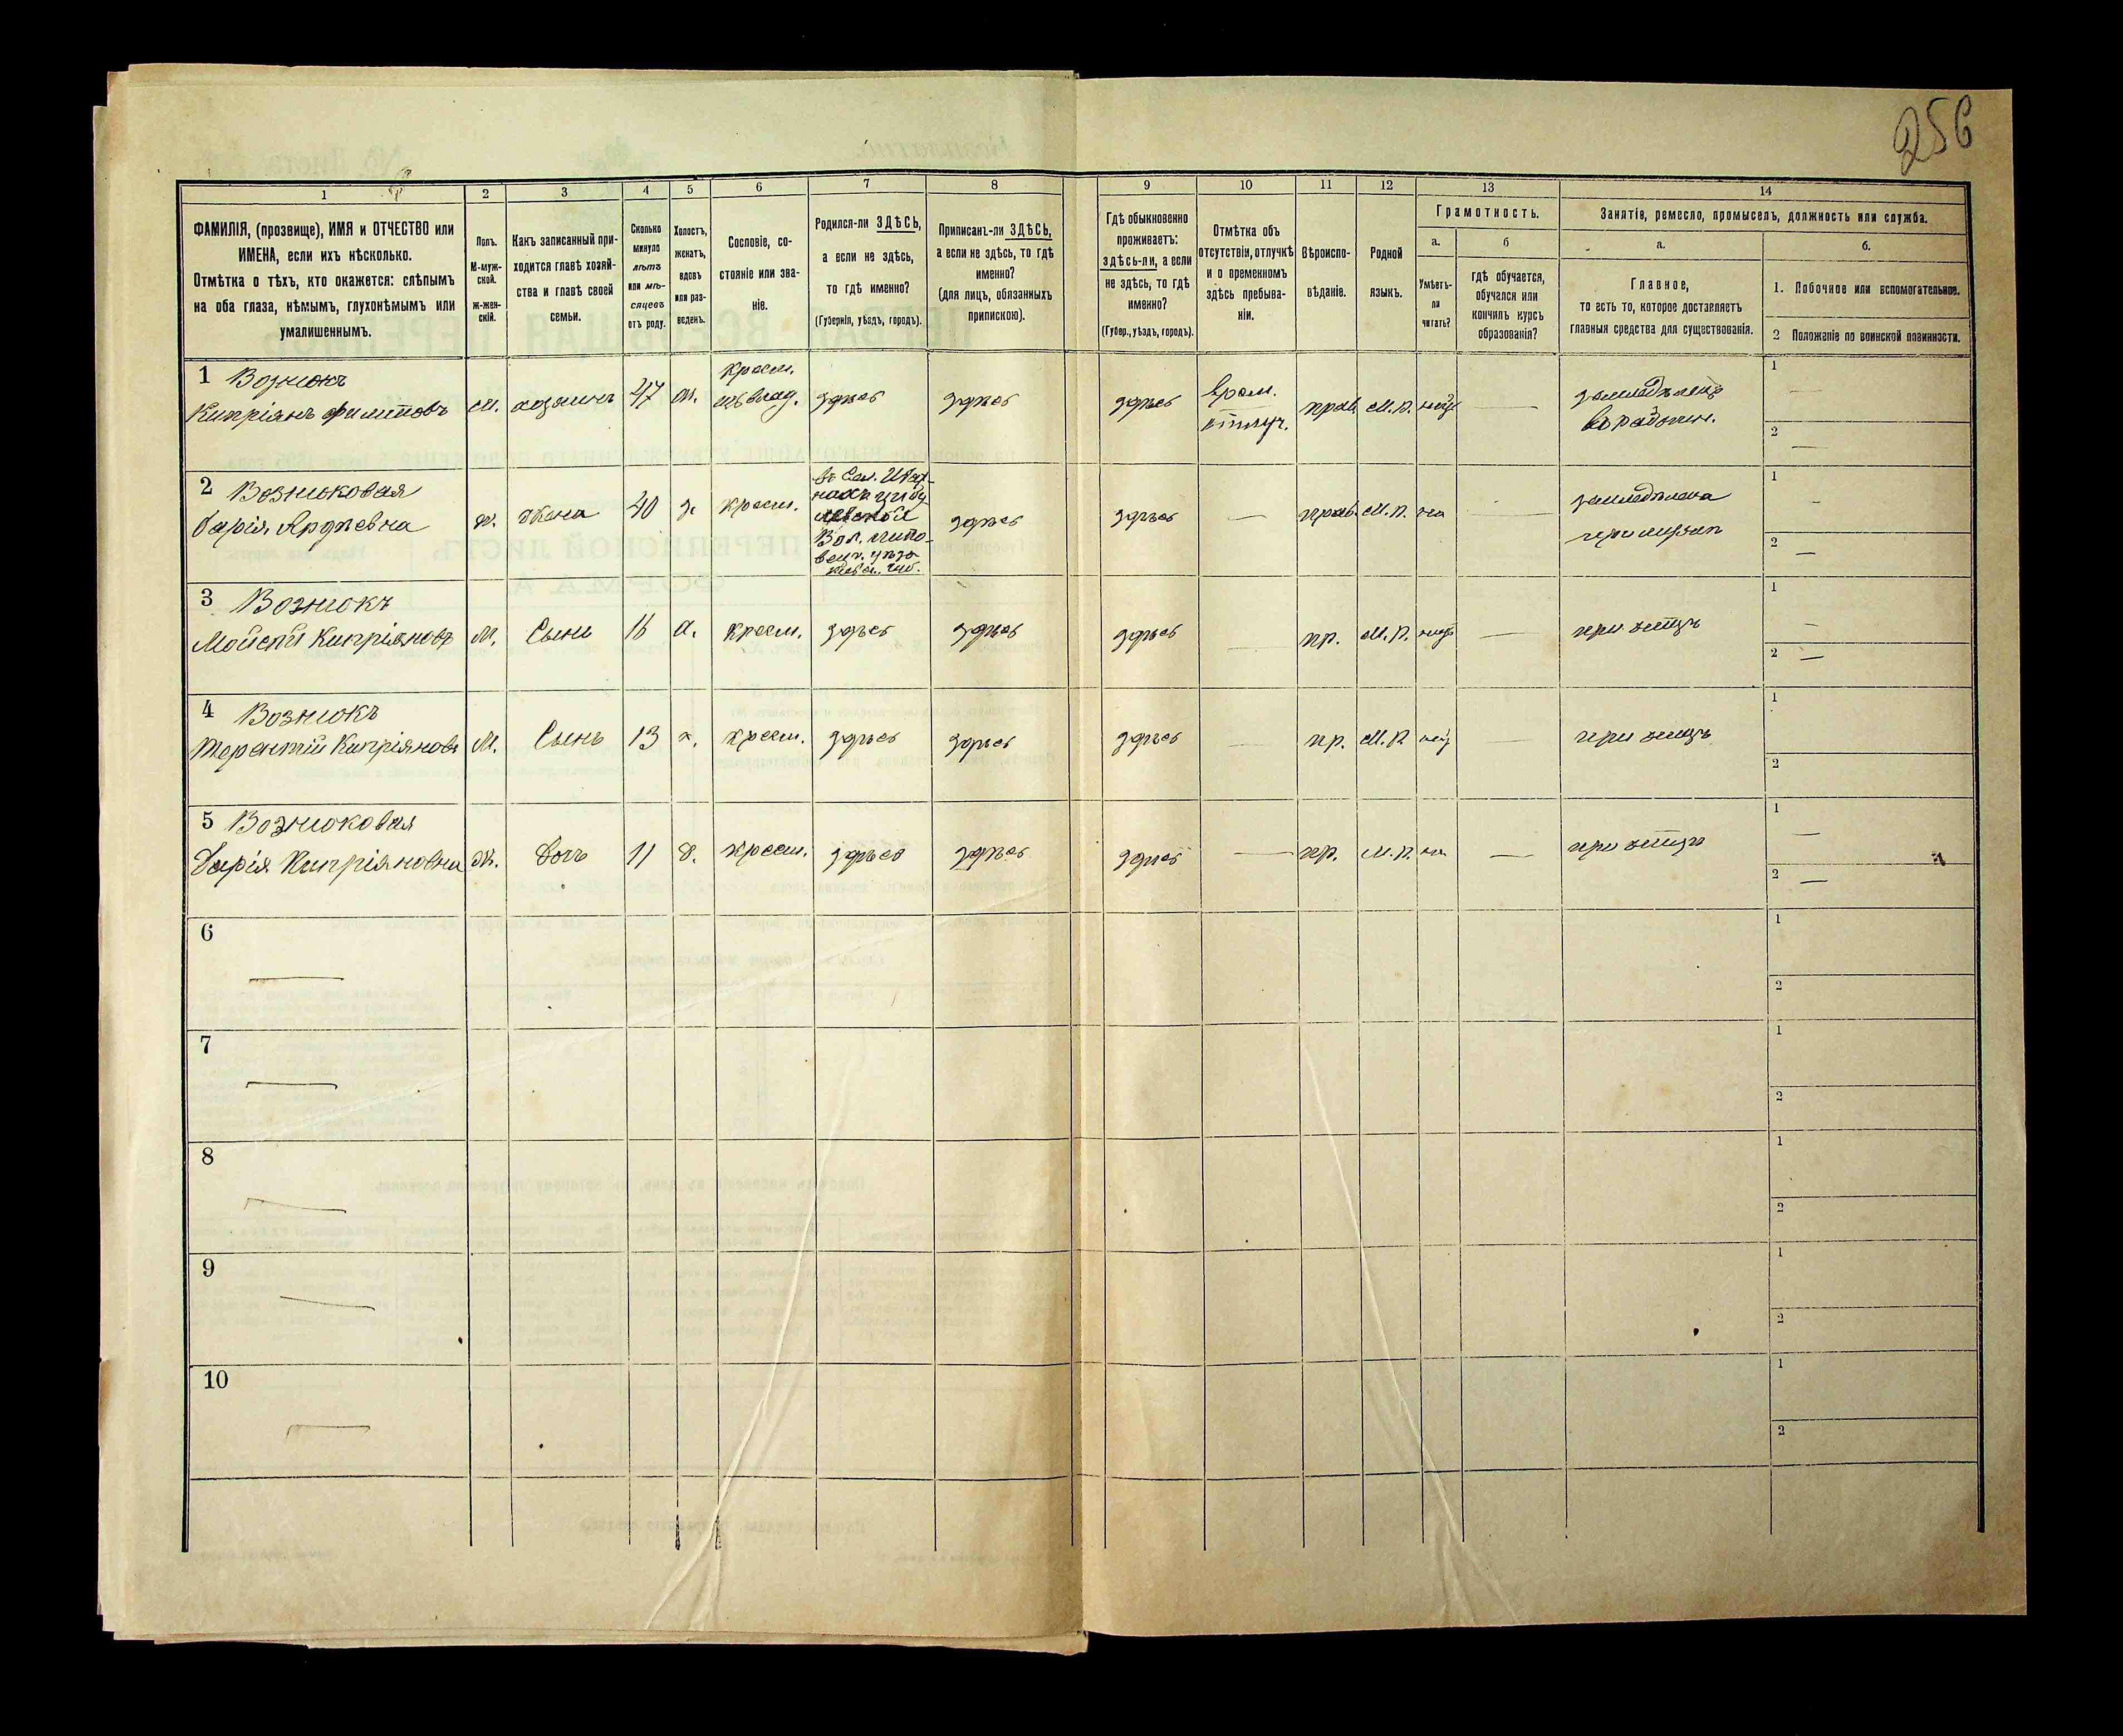 256
1 2 3 4 5 6 7 8 9 10 11 12 13 14
ФАМИЛІЯ, (прозвище), ИМЯ и ОТЧЕСТВО или
ИМЕНА, если ихъ нѣсколько.
Отмѣтка о тѣхъ, кто окажется: слѣпымъ
на оба глаза, нѣмымъ, глухонѣмымъ или
умалишеннымъ.
Полъ.
М-муж-
ской.
ж-жен-
скій.
Какъ записанный при-
ходится главѣ хозяй-
ства и главѣ своей
семьи.
Сколько
минуло
лѣтъ
или мѣ-
сяцевъ
отъ роду.
Холостъ,
женатъ,
вдовъ
или раз-
веденъ.
Сословіе, со-
стояніе или зва-
ніе.
Родился-ли ЗДѢСЬ,
а если не здѣсь,
то гдѣ именно?
(Губернія, уѣздъ, городъ).
Приписанъ-ли ЗДѢСЬ,
а если не здѣсь, то гдѣ
именно?
(для лицъ, обязанныхъ
припискою).
Гдѣ обыкновенно
проживаетъ:
здѣсь-ли, а если
не здѣсь, то гдѣ
именно?
(Губер., уѣздъ, городъ).
Отмѣтка объ
отсутствіи, отлучкѣ
и о временномъ
здѣсь пребыва-
ніи.
Вѣроиспо-
вѣданіе.
Родной
языкъ.
Грамотность.
а.
Умѣетъ-
ли
читать?
б
гдѣ обучается,
обучался или
кончилъ курсъ
образованія?
Занятіе, ремесло, промыселъ, должность или служба.
а.
Главное,
то есть то, которое доставляетъ
главныя средства для существованія.
б.
1. Побочное или вспомогательное.
2 Положеніе по воинской повинности.
1 Вознюкъ
Кипріянъ Филиповъ
М. хозяинъ 47 ж. крест. здѣсь здѣсь здѣсь врем. прав. М. Р. нетъ
1
2
2 Вознюковая
Дарія
ж. жена 40 з. крест.
Вол. Липо-
здѣсь здѣсь — прав. М. Р.
1 —
2 —
3 Вознюкъ
Мойсей Кипріяновъ
М. Сынъ крест. здѣсь здѣсь здѣсь — пр. М. Р. — при отцѣ
1 —
2 —
4 Вознюкъ
Терентій Кипріяновъ
М. Сынъ 13 х. крест. здѣсь здѣсь здѣсь — пр. М. Р. — при отцѣ
1
2
5 Вознюковая
Дарія Кипріяновна
ж. дочь 11 д. крест. здѣсь здѣсь здѣсь — пр. М. Р. — при отцѣ
1 —
2 —
6 —
1
2
7 —
1
2
8 —
1
2
9 —
1
2
10 —
1
2